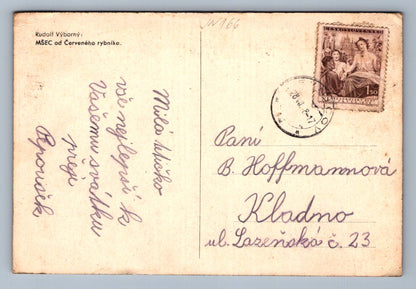 Rudolf Výborný:
MŠEC od Červeného rybníka.
Milá tetičko
vše nejlepší k
Vašemu svátku
přeje
ČESKOSLOVENSKO
1,50
Paní
B. Hoffmannová
Kladno
ul. Lazeňská č. 23